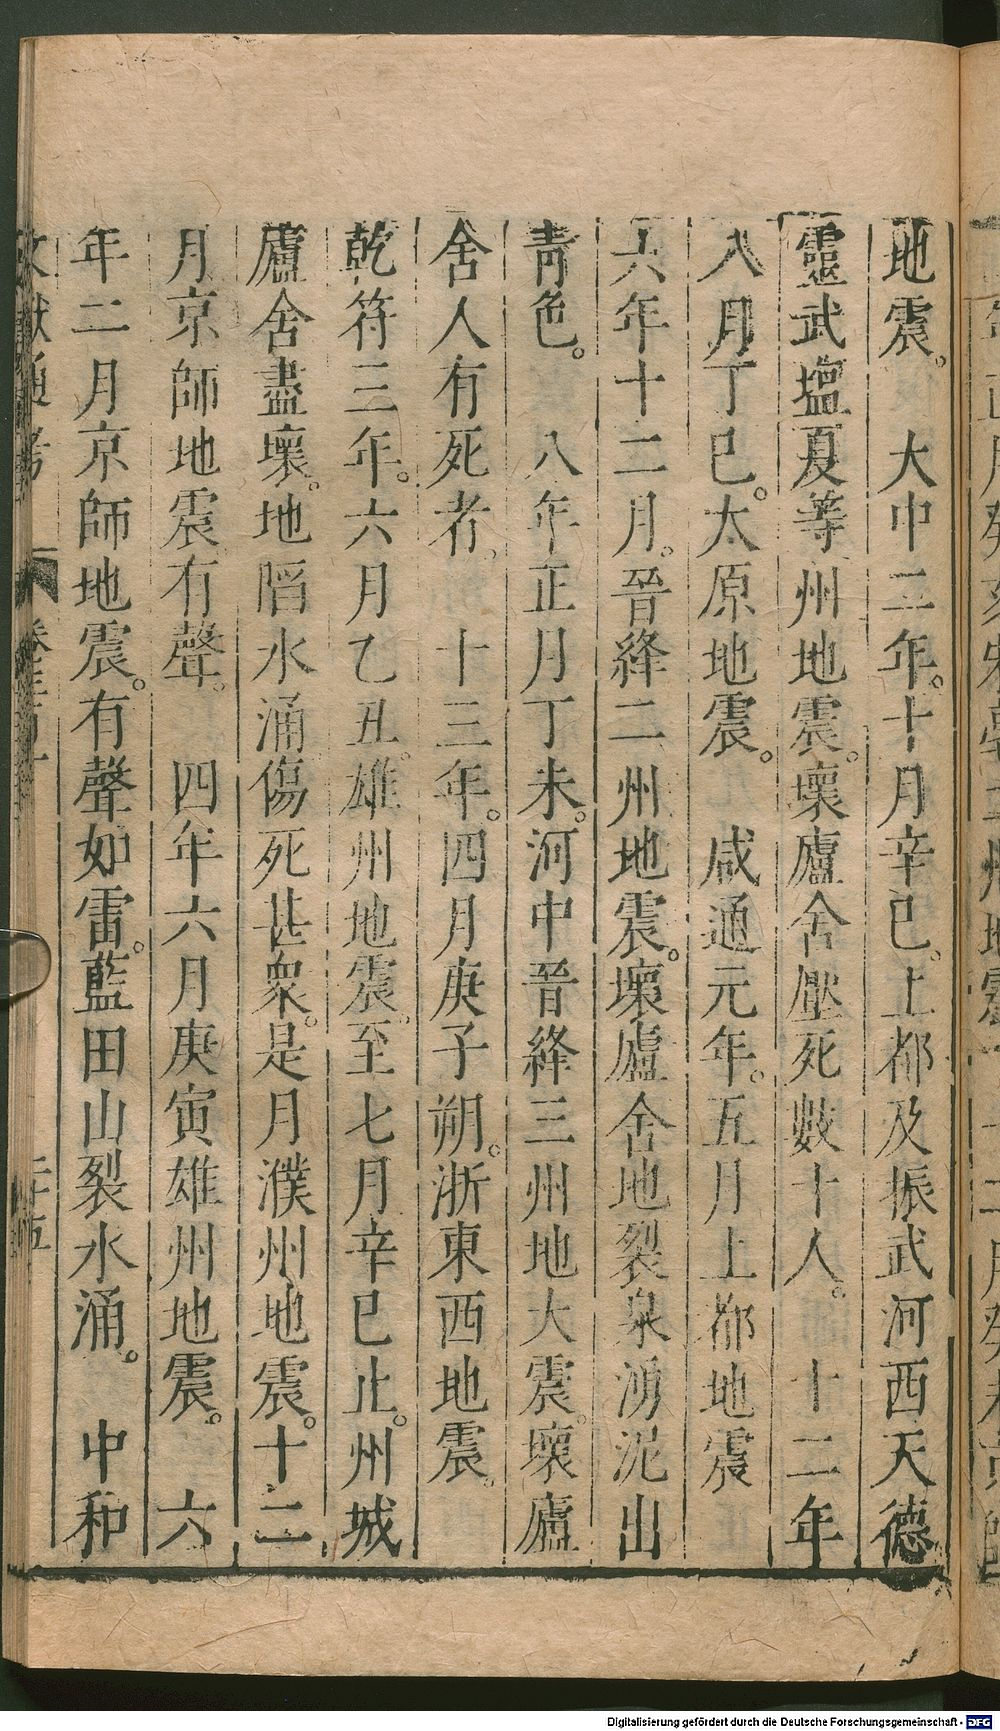 地震。　大中二年。十月辛巳。上都及振武河西天德
靈武塩夏等州地震。壞廬舍壓死數十人。　十二年
八月丁巳。太原地震。　咸通元年。五月上都地震
六年十二月。晉絳二州地震。壞廬舍地裂泉湧泥出
靑色。　八年正月丁未。河中晉絳三州地大震。壞廬
舍人有死者。　十三年。四月庚子朔。浙東西地震。
乾符三年。六月乙丑。雄州地震。至七月辛巳止。州城
廬舍盡壞。地陷水涌傷死甚衆。是月濮州地震。十二
月京師地震有聲。　四年六月庚寅雄州地震。　六
年二月京師地震。有聲如雷。藍田山裂水涌。　中和
文獻通考
Digitalisierung gefördert durch die Deutsche Forschungsgemeinschaft - DFG